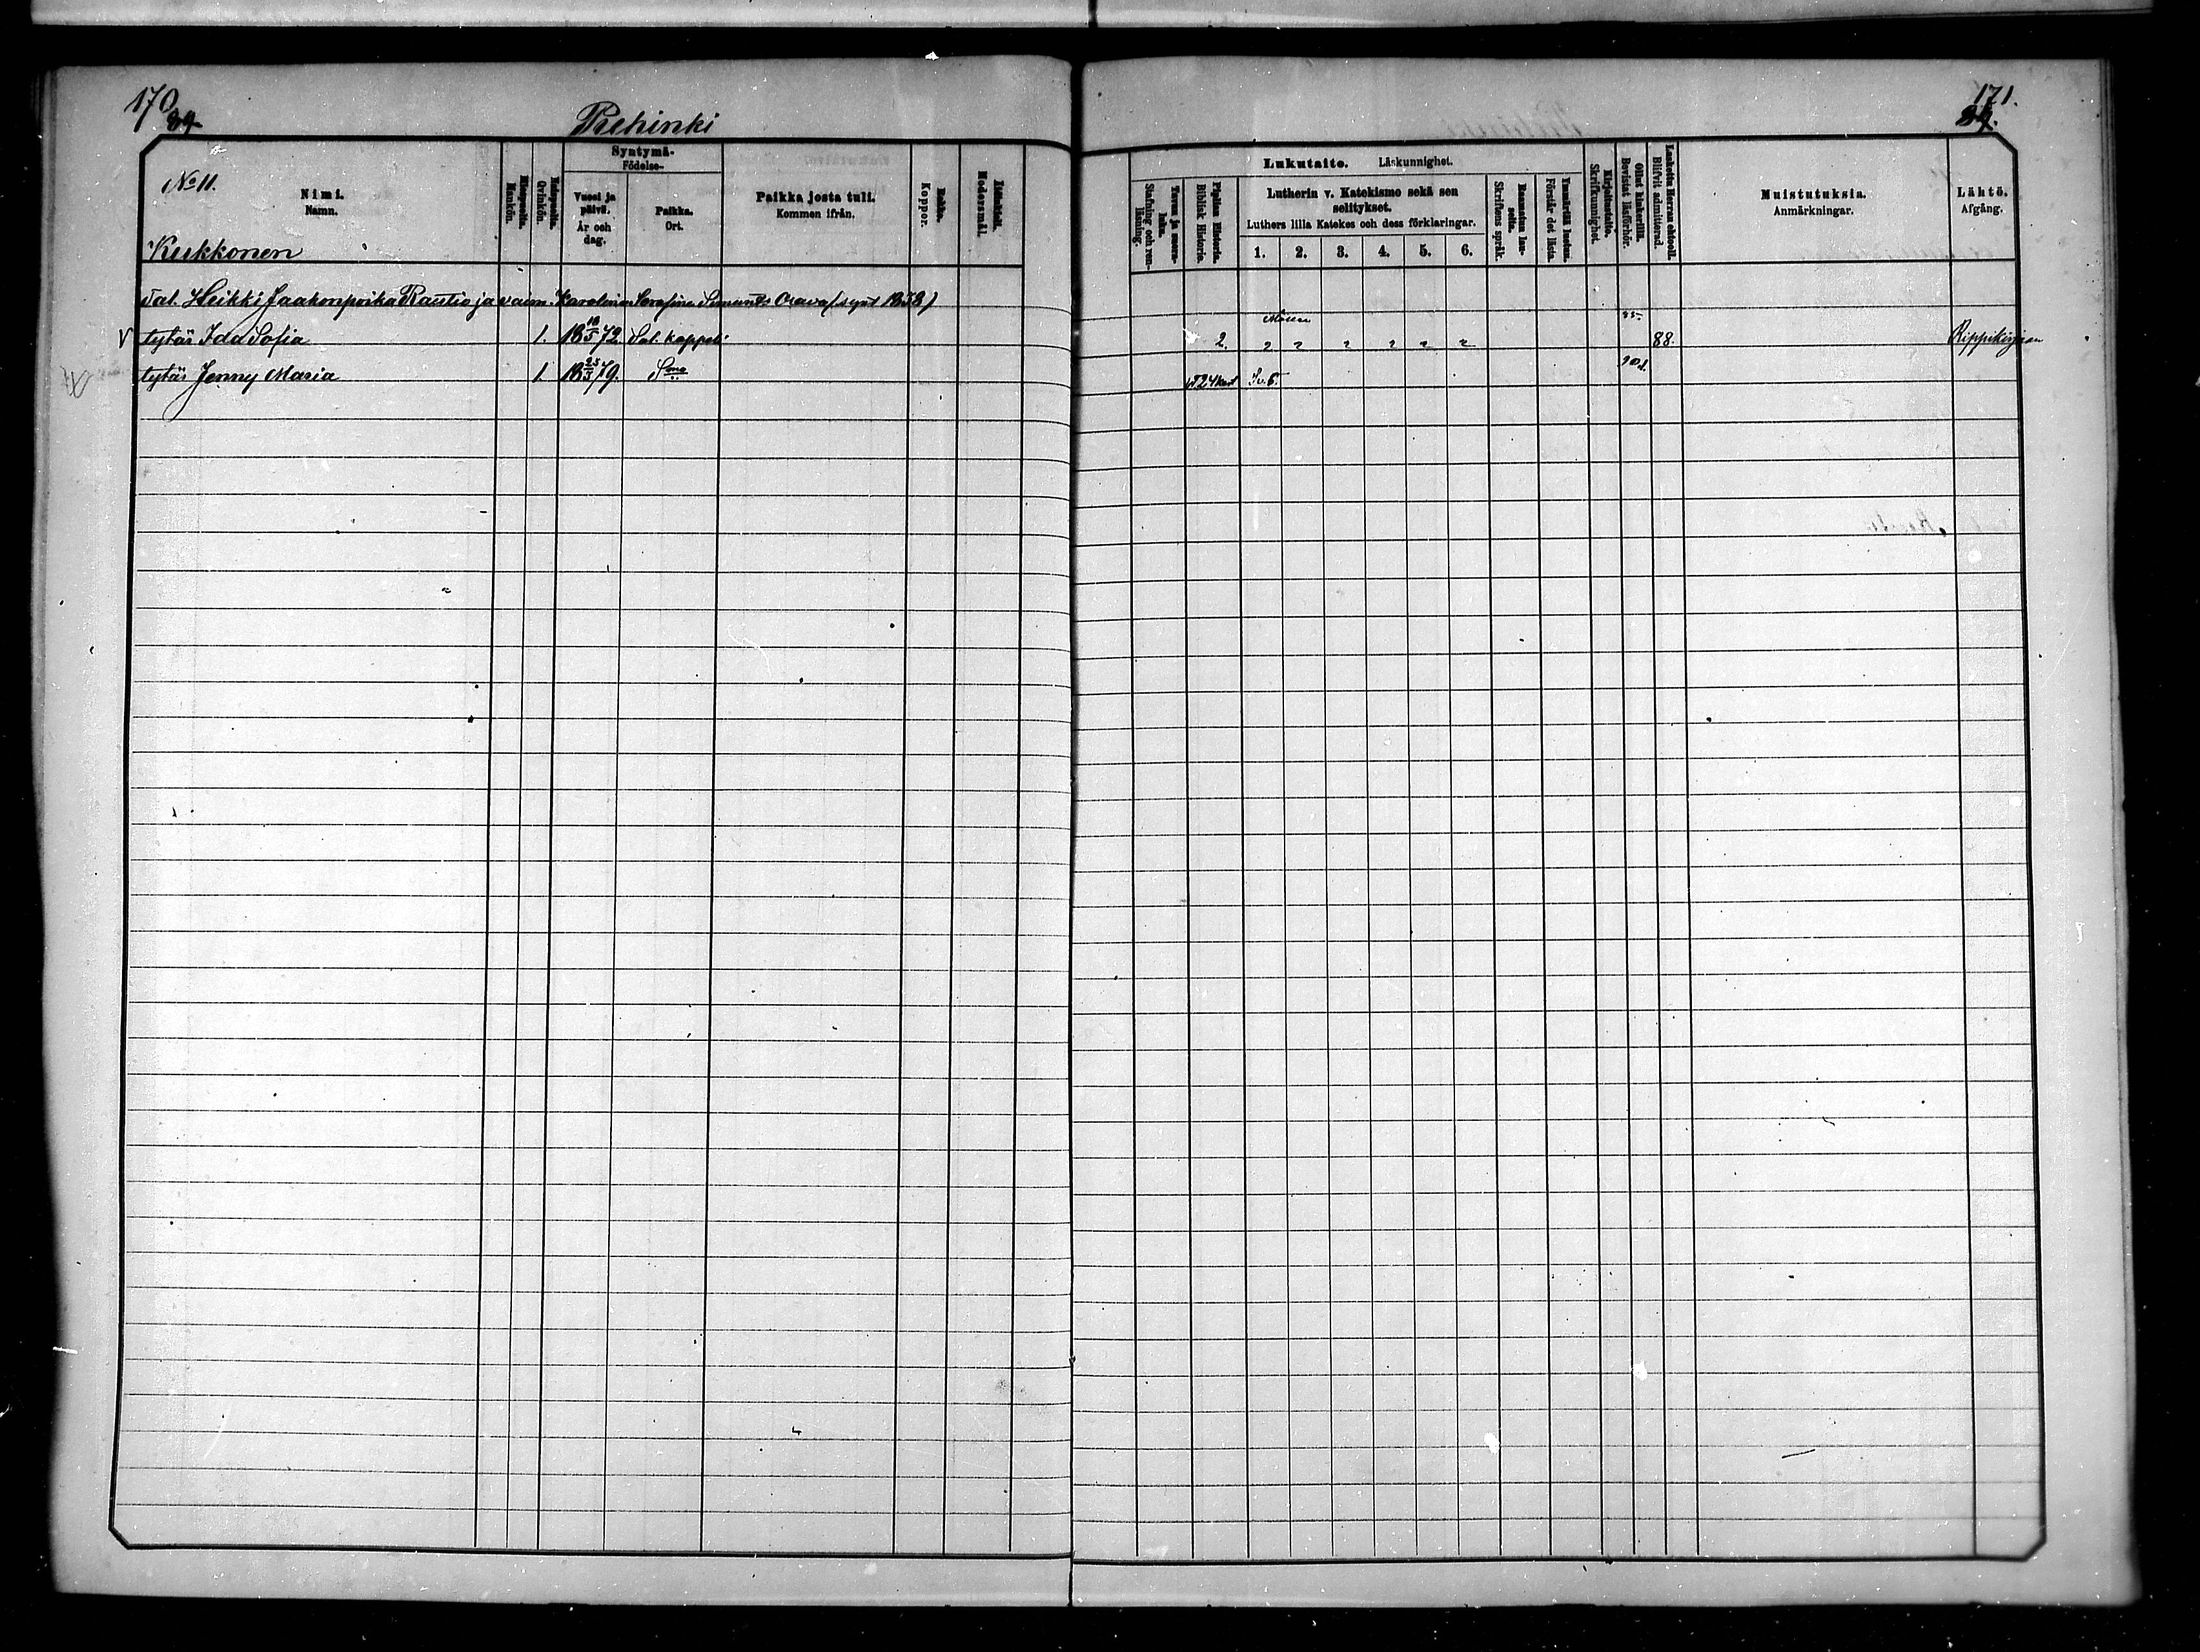 170
84
Rehinki
No 11.
Nimi.
Namn.
Kukkonen
Miespuolia.
Mankön.
Naispuolia.
Qvinkön.
Syntymä-
Födelse-
Vuosi ja päivä.
År och dag.
Paikka.
Ort.
Paikka josta tuli.
Kommen ifrån.
Rokko.
Koppor.
Äidinkieli.
Modersmål.
Tal. Heikki Jaakonpoika Rautio ja vaim. Karolina Serafina Simunts Orava (synt 1858)
V tytär Ida Sofia 1. 18 18/5 72 Sal. kappeli
tytär Jenny Maria 1. 18 25/5 79. Sma
171.
Lukutaito. Läskunnighet.
Tavaa ja suoralukn.
Stafning och renläsning.
Piplian Historia.
Biblisk Historie.
Lutherin v. Katekismo sekä sen selitykset.
Luthers lilla Katekes och dess förklaringar.
1. 2. 3. 4. 5. 6.
Raamatun lauseita.
Skriftens språk.
Ymmärtää luetun.
Förstår det lästa.
Kirjoitustaito.
Skrifkunnighet.
Ollut kinkerillä.
Bevistat läsförhör.
Laskettu Herran ehtooll.
Blifvit admitterad.
Muistutuksia.
Anmärkningar.
Lähtö.
Afgång.
85.
2. 2 2 2 2 2 2 88. Rippikirjaan